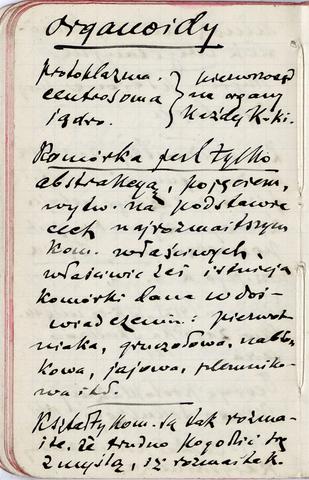 organoidy
protoplazma.
centrosoma
jądro.
na organy
każdej k-ki.
Komórka jest tylko
abstrakcyą, pojęciem,
wytw. na podstawie
cech najrozmaitszym
kom. właściwych,
właściwie zaś istnieją
komórki dane w doś-
wiadczeniu: pierwot
niaka, gruczołowa, nabło
kowa, jajowa, plemniko-
wa itd.
Kształty kom. są tak rozma-
ite, że trudno pogodzić się
z myślą, iż rozmaitek.